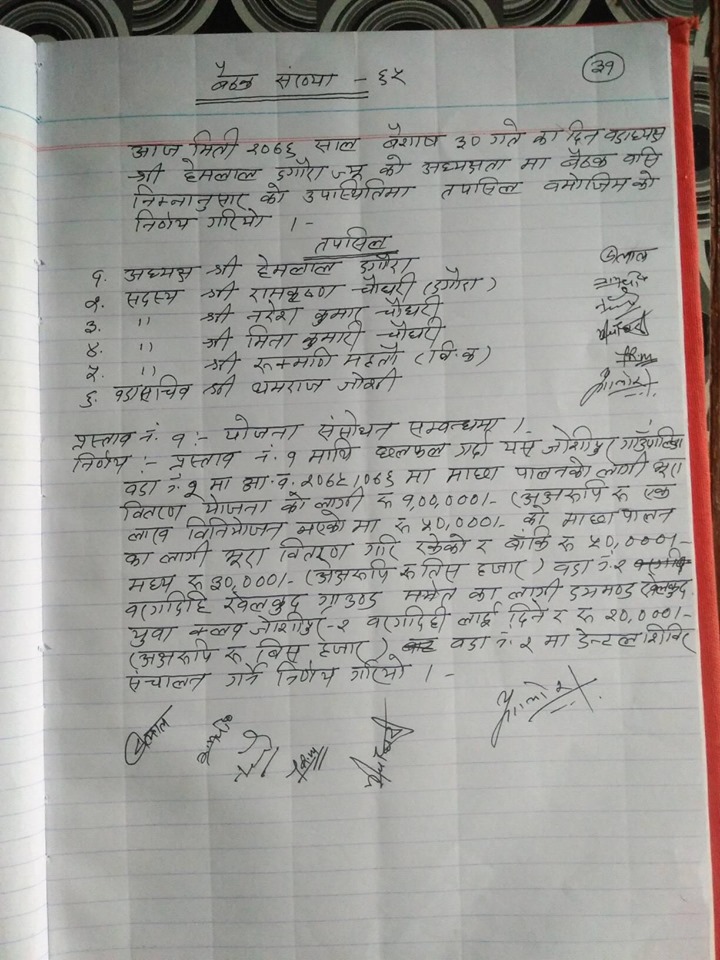 ३१
बैठक संख्या - ६५
आज मिती २०७६ साल बैशाष ३० गते का दिन वडाध्यक्ष
श्री हेमलाल डगौरा ज्यू को अध्यक्षता मा बैठक वसि
निम्नानुसार को उपास्थितिमा तपसिल वमोजिमको
निर्णय गरियो ।-
तपसिल
१. अध्यक्ष श्री हेमलाल डगौरा
२. सदस्य श्री रामकृष्ण चौधरी (डगौरा)
३. " श्री नरेश कुमार चौधरी
४. " श्री मिना कुमारी चौधरी
५. " श्री रूकमागि महतौ (वि.क)
६. वडासचिव श्री थमराज जोशी
प्रस्ताव नं. १ :- योजना संसोधन सम्वन्धमा ।
निर्णय :- प्रस्ताव नं. १ माथि छलफल गर्दा यस जोशीपुर गाउँपालिका
वडा नं. २ मा आ.व. २०७५।०७६ मा माछा पालनको लागी भूरा
वितरण योजना को लागी रु १,००,०००।- (अक्षरूपि रू एक
लाख विनियोजन भएको मा रु ५०,०००।- को माछा पालन
का लागी भूरा वितरण गरि सकेको र बाँकि रु ५०,०००।-
मध्य रु ३०,०००।- (अक्षरूपि रु तिस हजार) वडा नं. २
वगदिहि खेलकुद ग्राउण्ड ममेत का लागी डायमण्ड खेलकुद
युवा क्लव जोशीपुर-२ वगदिही लाई दिने र रु २०,०००।-
(अक्षरूपि रु बिस हजार) वडा नं. २ मा डेन्टल शिविर
संचालन गर्ने निर्णय गरियो ।-